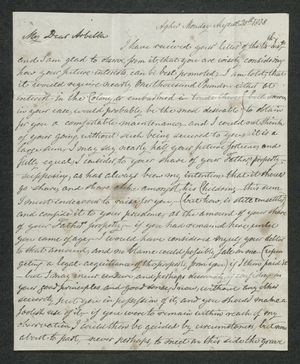 Aghir Monday August 20th 1838
My Dear Arbella
I have received your letter of the 16th inst
and I am glad to observe from it, that you are wisely considering
how your future interests can be best promoted. I am told, that
it would require nearly One thousand Pounds
interest in the Colony, to
in your case, would probably be the most to obtain
for you a comfortable maintenance and I could not think
of your going without such being secured to you it is a
large sum, I may say nearly half your future fortune, and
fully equal, I consider, to your share of your Father's property,
supposing, as has always been my intention that it should
go share and share alike amongst his Children, this sum
I must endeavour to raise for you (but how, to state exactly)
and confide it to your prudence, as the amount of your share
of your Father's property if you had remained here, until
you came of age, I would have considered myself your debtor
to that amount, and no blame could possibly fall on me (upon
getting a legal acquittance of the property from you) if I then paid it
but I may incur censure and perhaps deservedly if, relying on
your good principles and good sense, I now, without any other
security, put you in possession of it, and you should make a
foolish use of it if you were to remain within reach of my
observation I could then be guided by circumstances, but we are
about to part, never perhaps, to meet on this side the grave